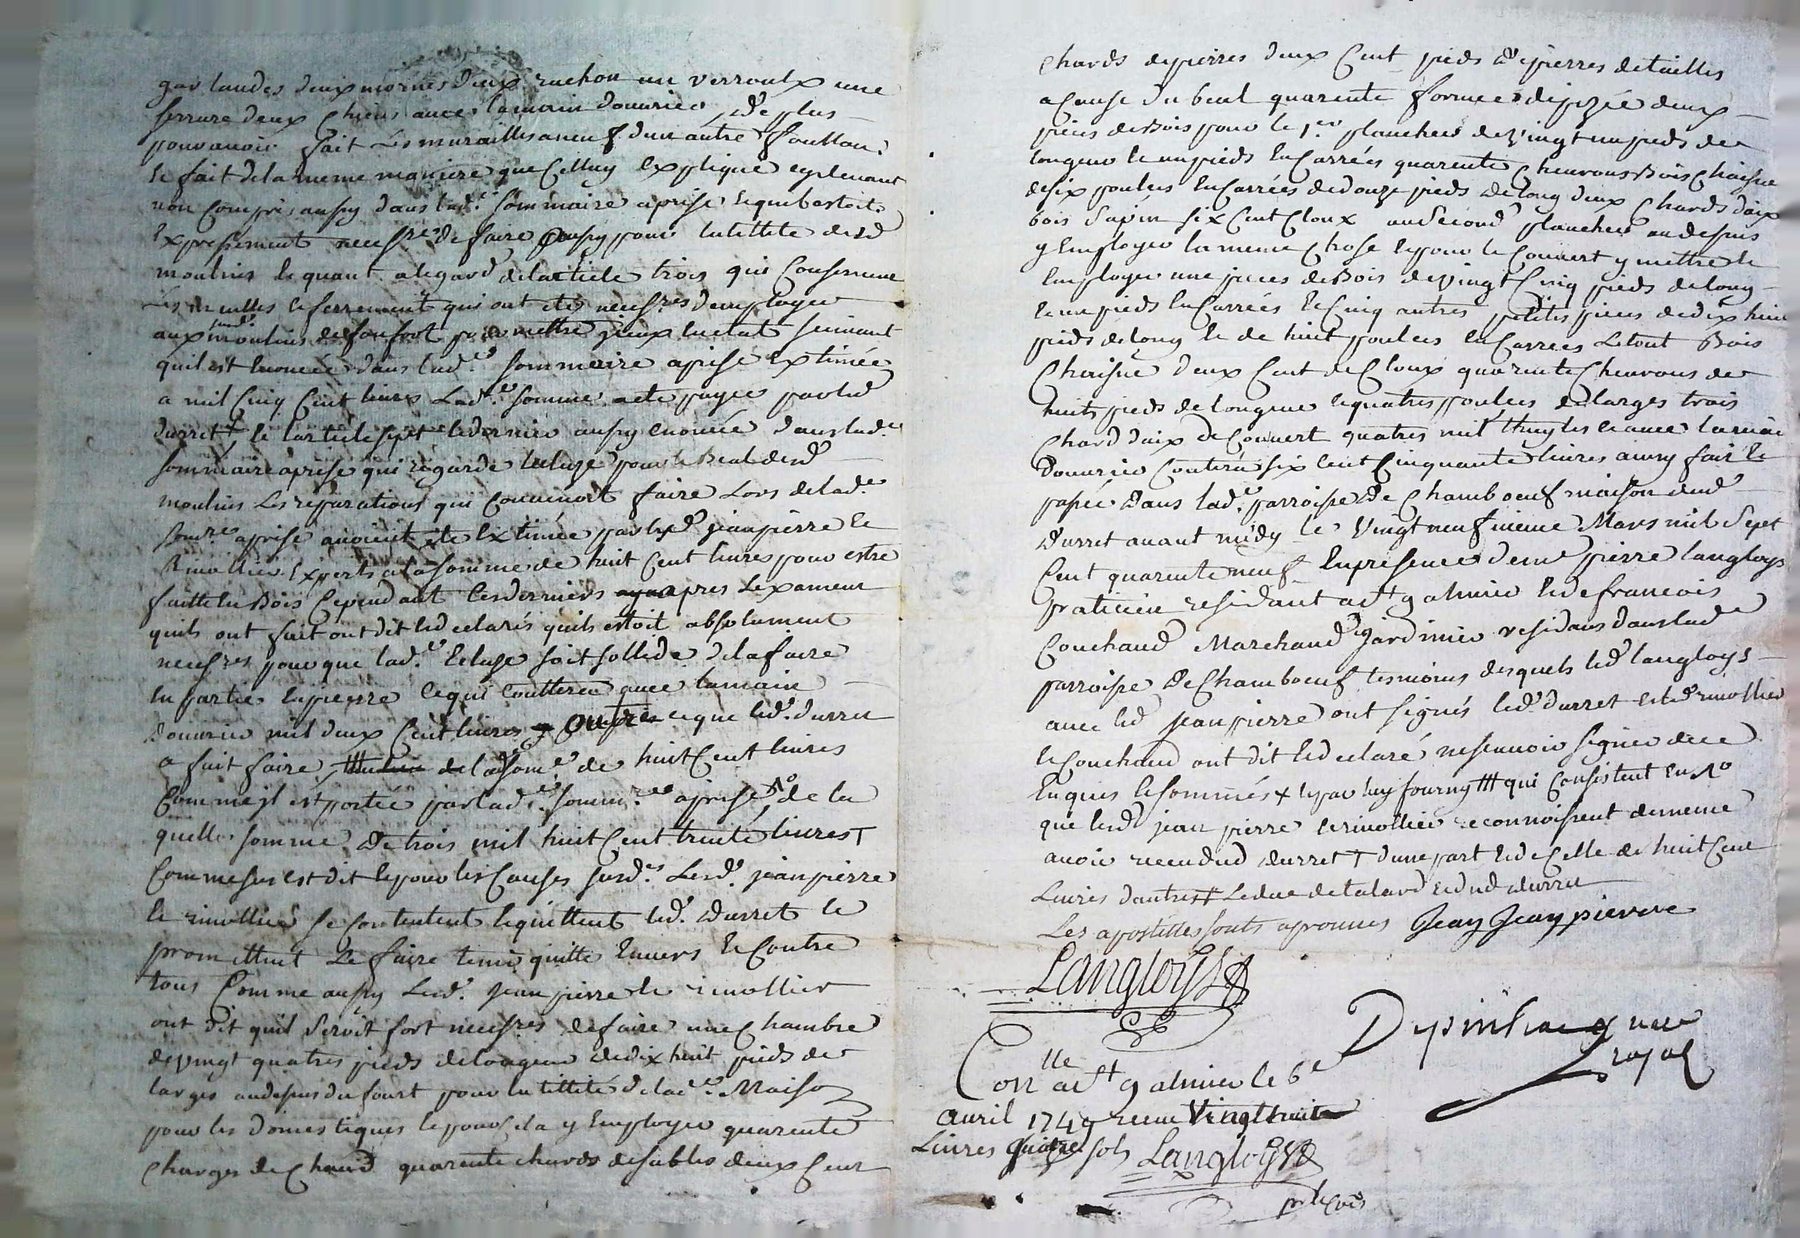 garlandes deux mornes deux ruchon un verroulx une
serrure deux chiens avec lamain douvrier, de plus
pour avoir fait les muraillis a neuf dun autre foullon
le fait de la meme maniere que Celluy Explique cydevant
non Compris aussy dans lad.e sommaire aprise lequel estoit
Expressement necess.re de faire aussy pour lutillité desd
moulins lequant alegard delarticle trois qui Conserne
Les meulles le ferrement qui ont été necess.res demployer
aux moulins de fonfort pour mettre yceux en etat servant
quil est Enoncée dans lad.e sommaire aprise Extimée
a mil Cinq Cent livres Lad.e somme a ete payée par led
durret & larticle sept & dernier aussy enoncée dans lad.e
sommaire aprise qui regarde lecluze pour le Beal desd
moulins Les reparations qui Convenoit faire Lors delad.e
somre aprise avoient ete Extimée par lesd jeanpierre le
Rimollier Experts a la somme de huit Cent livres pour estre
faitte en Bois Cependant les derniers apres Lexament
quils ont fait ont dit & declarés quils estoit absolument
necess.res pour que lad.e Ecluse soit sollide de la faire
en partie en pierre Cequi Couttera avec lamain
Douvrier mil deux Cent livres outre ceque led. durret
a fait faire de lad some de huit Cent livres
Comme jl est portée par lad.e somm.re aprise de la
quelle somme De trois mil huit Cent trente livres †
Comme sus est dit & pour les Causes susd.es Lesd. jeanpierre
le rimollier se Contentent & quittent led. Durret le
promettent Le faire tenir quitte Envers & Contre
tous Comme aussy Lesd. jeanpierre le rimollier
ont dit quil seroit fort necess.res de faire une Chambre
de vingt quatre pieds de longeur de dix huit pieds de
larges audessus du fourt pour lutillité de lad.e Maison
pour les domestiques & pour Cela y Employer quarente
Charges de Chaud quarente chards de sables deux Cent
chards de pierres deux Cent pieds de pierres detailles
a Cause du beal quarente formes deux
pieces de Bois pour le 1.er plancher de vingt un pieds de
longeur & un pieds En Carrées quarente chevrons Bois chaisne
de six poulces En Carrées de douze pieds de long deux Chards daix
bois sapin six Cent Cloux au second plancher au dessus
y Employer la meme Chose & pour le Couvert y mettre &
Employer une pieces de Bois de vingt Cinq pieds de long
& un pieds En Carrées & Cinq autres petites pieces de dix huit
pieds de long & de huit poulces En Carrées Letout Bois
Chaisne deux Cent de Cloux quarente Chevrons de
huits pieds de longeur & quatres poulces de larges trois
Chard daix de Couvert quatres mil thuylles & avec lamain
Douvrier Coutera six Cent Cinquante livres aussy fait &
passé Dans lad.e parroisse De Chamboeuf maison dud
Durret avant midy le vingt neufvieme Mars mil sept
Cent quarente neuf En presence de m.e pierre langloys
praticien residant a S.t galmier & de francois
Couchaud Marchand jardinier residans dans lad.e
parroisse De Chamboeuf temoins desquels led langloys
avec led jeanpierre ont signés led. durret & led rimollier
le Couchaud ont dit & declaré ne scavoir signer de ce
Enquis & sommés x & par luy fourny ††† qui Consistent En
que lesd jean pierre & rimollier reconnoissent de meme
avoir receu dud durret † dune part & de Celle de huit Cent
Livres dautres Leduc de talard & dud durret
Les apostilles sonts aprouvés Jean Jeanpierre
Langloys
Depinhac notre
royal
Con.lle a S.t galmier le 6.e
avril 1749 receu vingt huit
Livres quatre sols Langloys